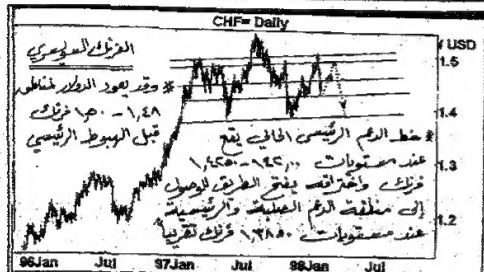 CHF= Daily
/ USD
الفرنك السويسري
* وقد يعود الدولار لمناطق
١,٤٨ - ١,٥٠ فرنك
قبل الهبوط الرئيسي
* خط الدعم الرئيسي الحالي يقع
عند مستويات ١,٤٢٠٠ - ١,٤٢٥٠
فرنك واختراقه يفتح الطريق للوصول
إلى منطقة الدعم الصلبة والرئيسية
عند مستويات ١,٣٨٥٠ فرنك تقريباً
1.5
1.4
1.3
1.2
96Jan Jul 97Jan Jul 98Jan Jul